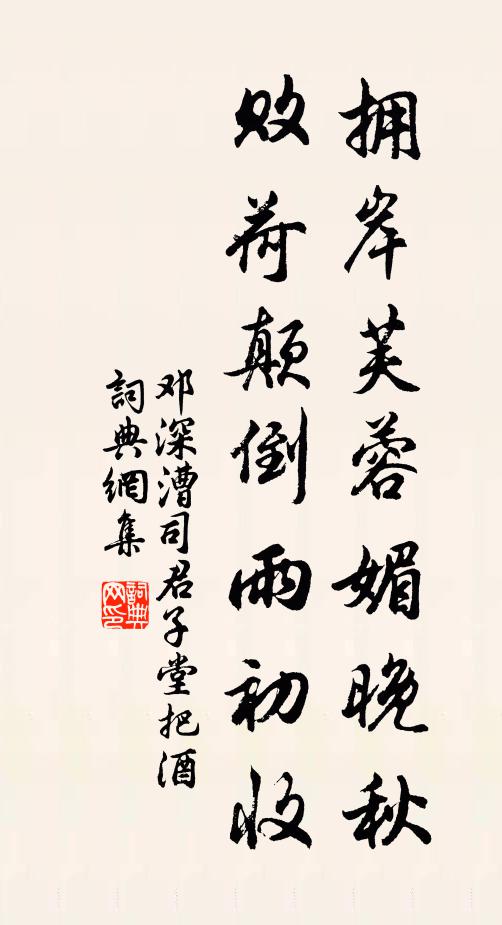 拥岸芙蓉媚晚秋
败荷颠倒雨初收
邓深漕司君子堂把酒
詞典網集
詞典网印